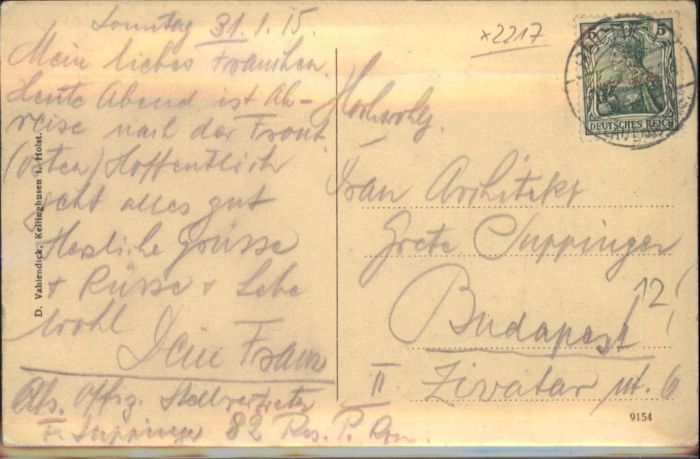 Sonntag 31.1.15.
Mein liebes Frauchen.
Heute Abend ist Ab-
reise nach der Front
(Osten) Hoffentlich
geht alles gut
Herzliche Grüsse
+ Küsse + Lebe
wohl
Dein Franz
Abs. Offiz. Stellvertreter
F. Suppinger 82 Res. P.
D. Vahlendick, Kellinghusen i. Holst.
×2217
5
DEUTSCHES REICH
Hochwohlg.
Frau Architekt
Grete Suppinger
12!
Budapest
II Zivatar ut. 6
9154